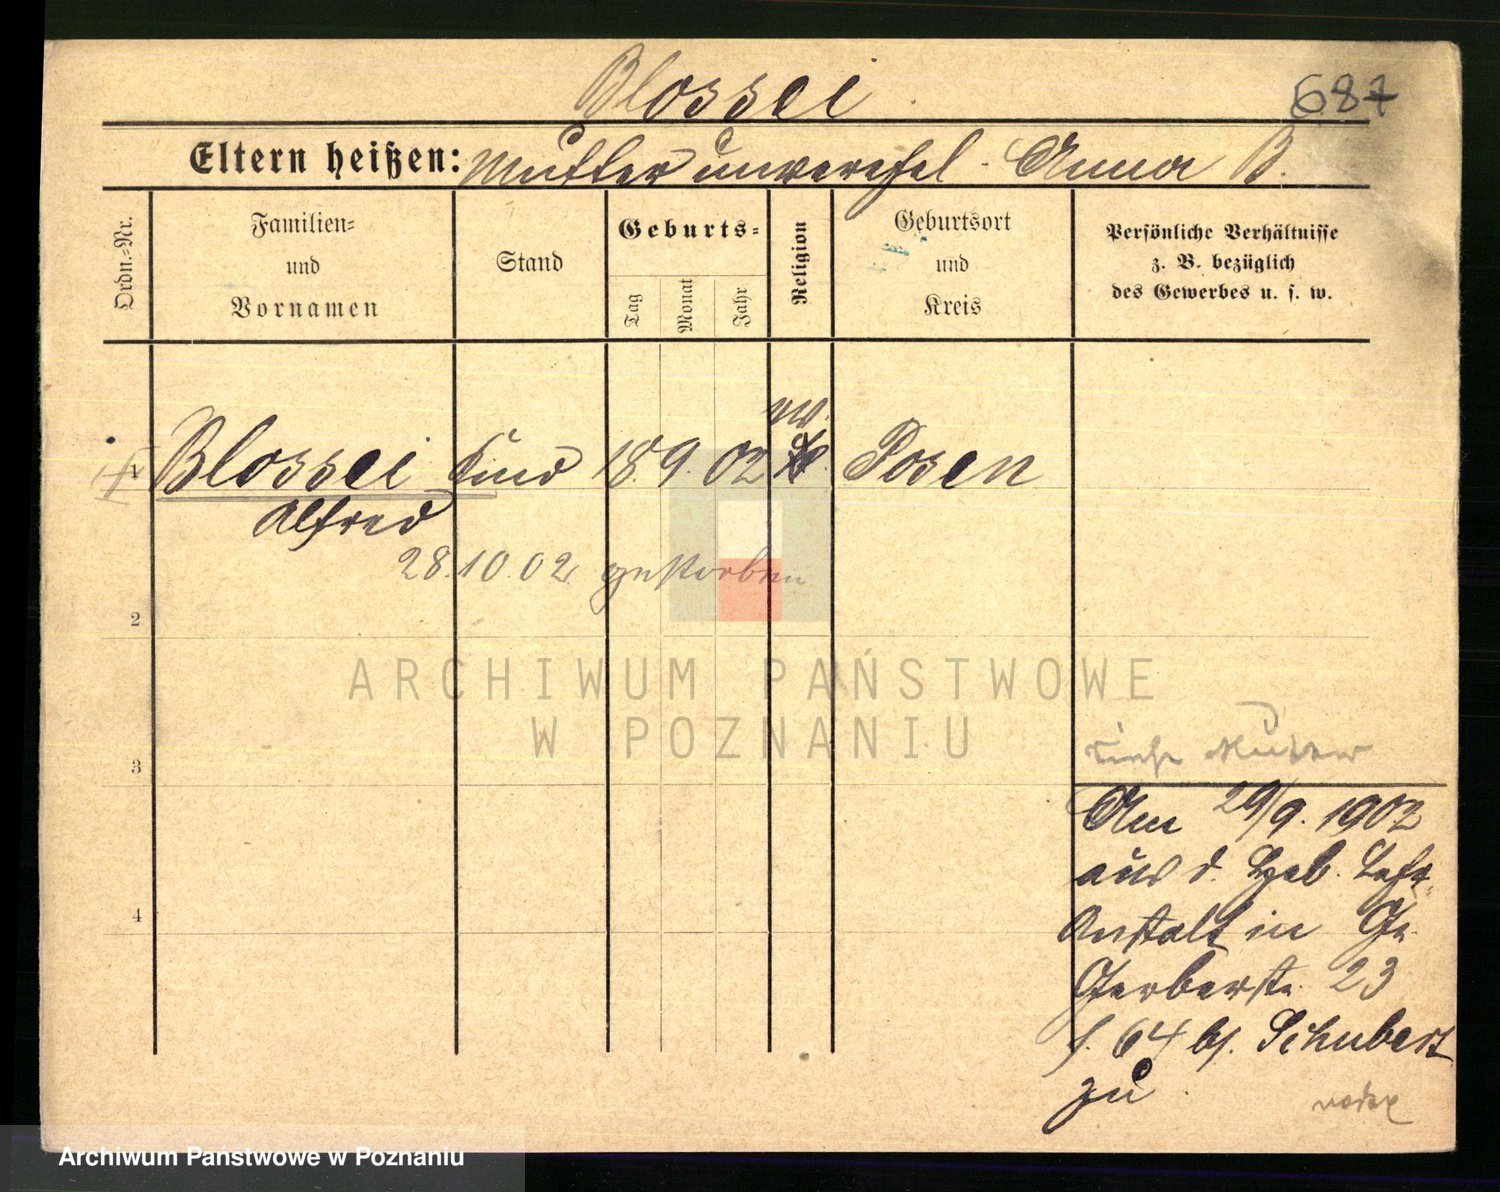 Blossei
687
Eltern heißen: Mutter unverehel. Anna B.
Ordn.-Nr.
Familien-
und
Vornamen
Stand
Geburts-
Tag
Monat
Jahr
Religion
Geburtsort
und
Kreis
Persönliche Verhältnisse
z. B. bezüglich
des Gewerbes u. s. w.
ev.
1 Blossei Kind 18. 9. 02 Posen
Alfred
28.10.02 gestorben
2
ARCHIWUM PAŃSTWOWE
W POZNANIU
siehe Mutter
3
Am 29/9. 1902
aus d. Heb. Lehr
Anstalt in
4
Gerberstr. 23
f. 64 b/. Schubert
zu
Archiwum Państwowe w Poznaniu